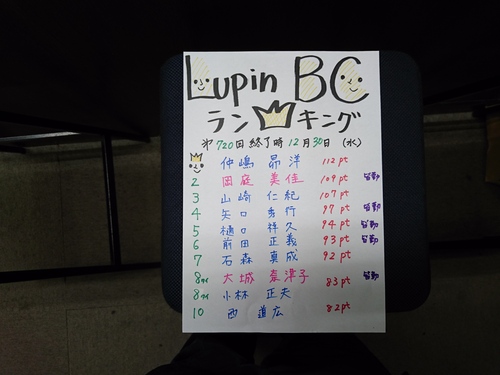 Lupin BC
ランキング
第720回 終了時 12月30日 (水)
仲嶋 昴洋 112pt
2 岡庭 美佳 109pt 皆勤
3 山崎 仁紀 107pt
4 矢口 秀行 97pt 皆勤
5 樋口 祥久 94pt 皆勤
6 前田 正義 93pt 皆勤
7 石森 真成 92pt
8タイ 大城 奈津子 83pt 皆勤
8タイ 小林 正夫
10 西 道広 82pt